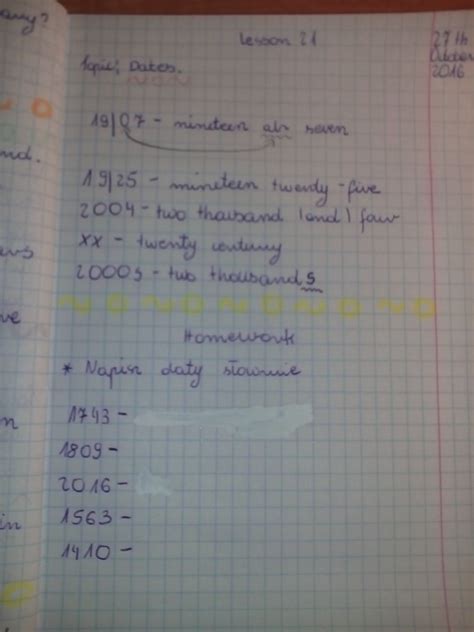 Lesson 21
27th
October
2016
Topic: Dates.
19|07 - nineteen oh seven
19|25 - nineteen twenty-five
2004 - two thousand (and) four
XX - twenty century
2000s - two thousands
Homework
* Napisz daty słownie
1743 -
1809 -
2016 -
1563 -
1410 -